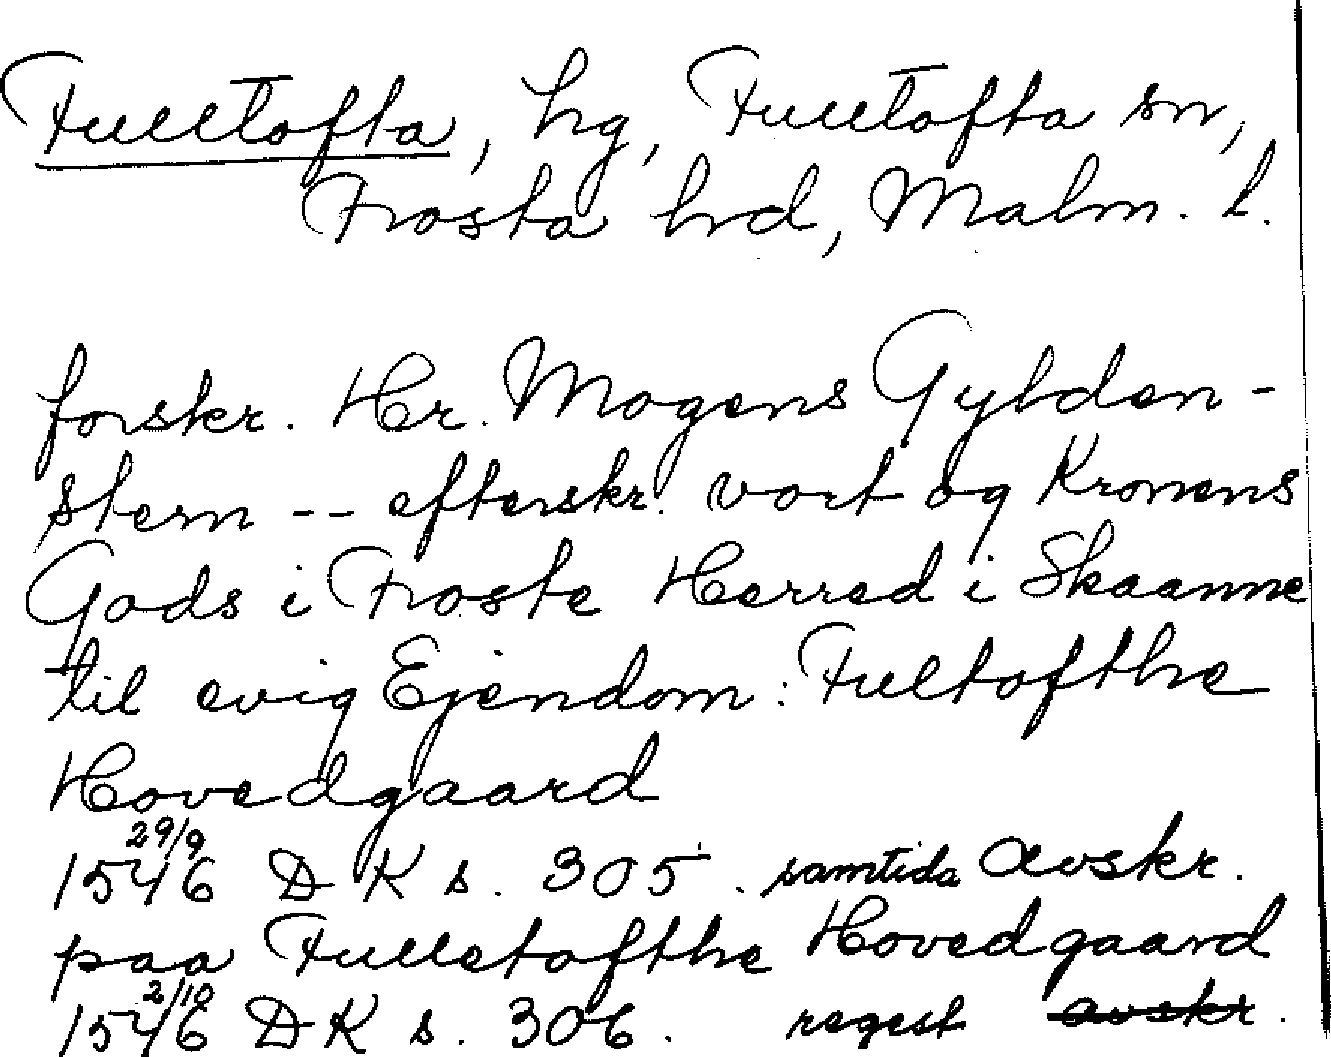 Fulltofta, hg, Fulltofta sn,
Frosta hrd, Malm. l.
forskr. Hr. Mogens Gylden-
stern -- efterskr. vort og Kronens
Gods i Froste Herred i Skaanne
til evig Ejendom: Fultofthe
Hovedgaard
29/9
1546 DK s. 305. samtida avskr.
paa Fulletofthe Hovedgaard
2/10
1546 DK s. 306. regest avskr.